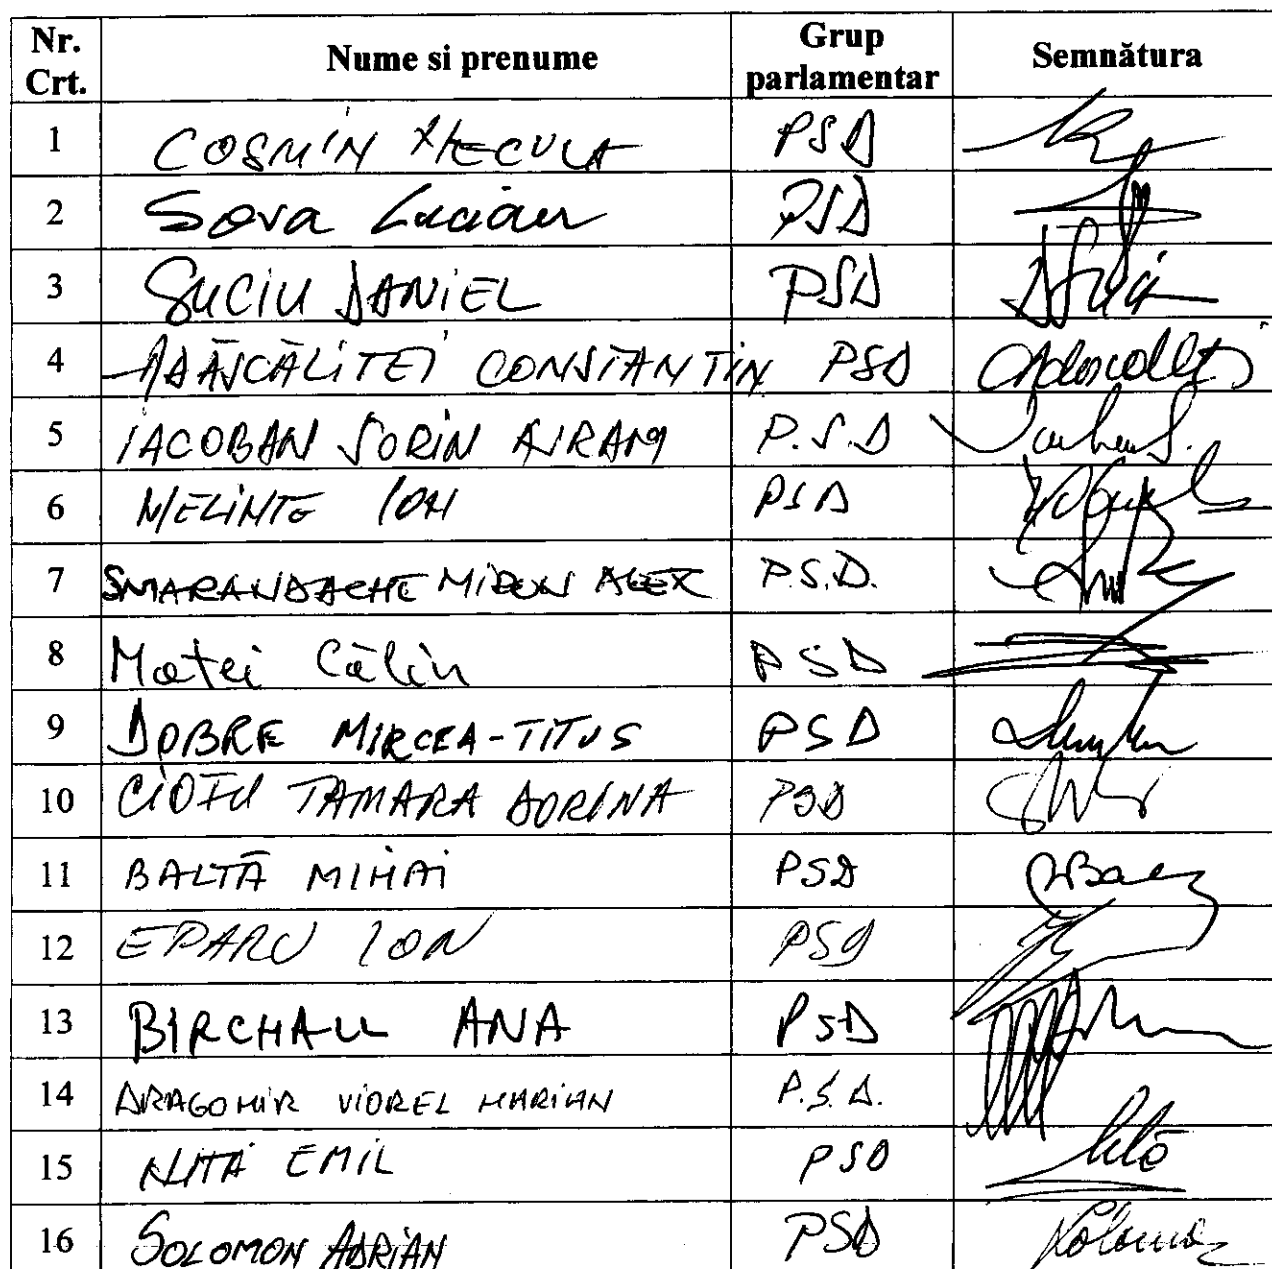 Nr. Crt. Nume si prenume Grup parlamentar Semnătura
1 COSMIN NECULA PSD
2 Sova Lucian PSD
3 SUCIU DANIEL PSD
4 ADĂSCĂLITEI CONSTANTIN PSD
5 IACOBAN SORIN AVRAM P.S.D
6 MELINTE ION PSD
7 SMARANDACHE MIRON ALEX P.S.D.
8 Matei Călin PSD
9 DOBRE MIRCEA-TITUS PSD
10 CIOFU TAMARA DORINA PSD
11 BALTĂ MIHAI PSD
12 EPARU ION PSD
13 BIRCHALL ANA PSD
14 DRAGOMIR VIOREL MARIAN P.S.D.
15 NITĂ EMIL PSD
16 SOLOMON ADRIAN PSD